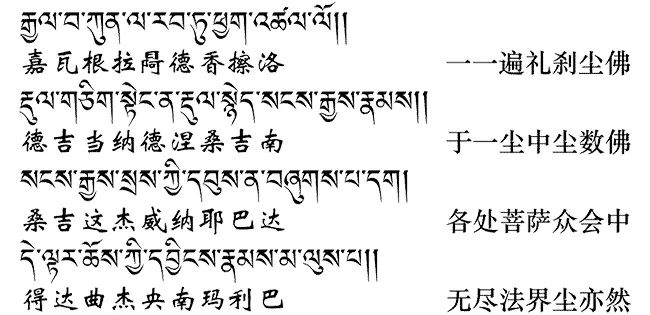 རྒྱལ་བ་ཀུན་ལ་རབ་ཏུ་ཕྱག་འཚལ་ལོ།།
嘉瓦根拉局德香擦洛 一一遍礼刹尘佛
རྡུལ་གཅིག་སྟེང་ན་རྡུལ་སྙེད་སངས་རྒྱས་རྣམས།།
德吉当纳德涅桑吉南 于一尘中尘数佛
སངས་རྒྱས་སྲས་ཀྱི་དབུས་ན་བཞུགས་པ་དག།
桑吉这杰威纳耶巴达 各处菩萨众会中
དེ་ལྟར་ཆོས་ཀྱི་དབྱིངས་རྣམས་མ་ལུས་པ།།
得达曲杰央南玛利巴 无尽法界尘亦然